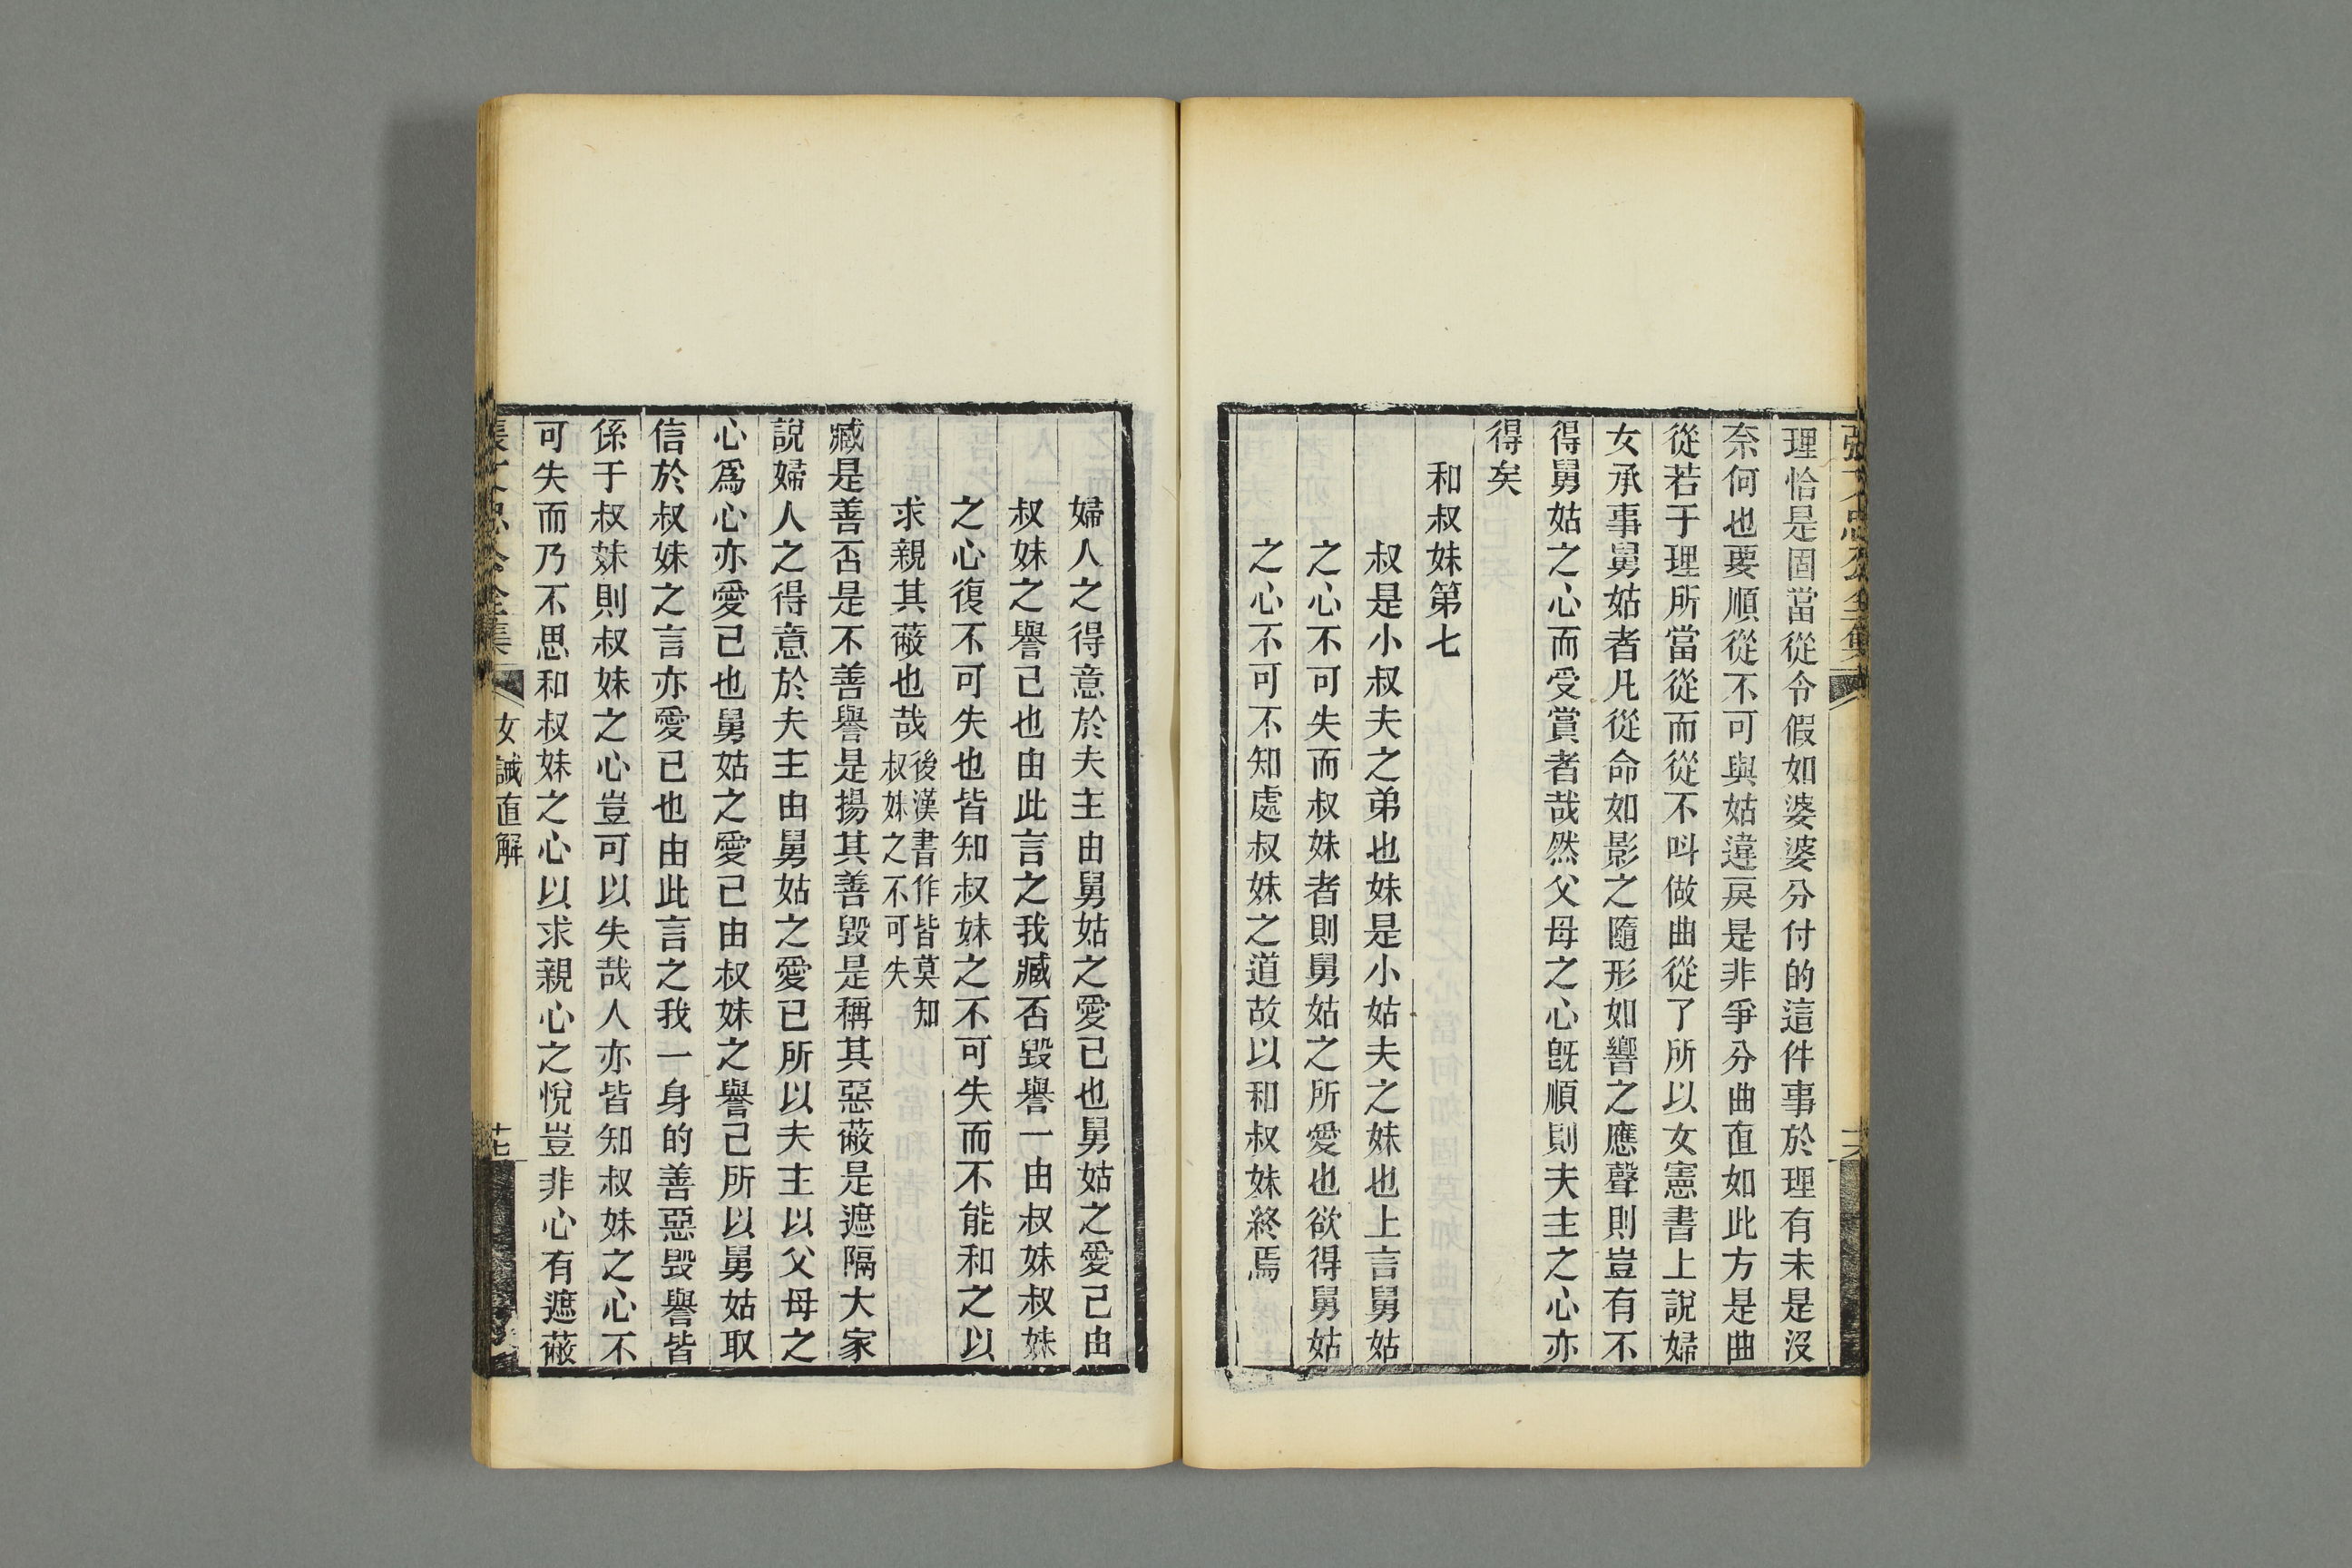 張文忠公全集
理恰是固當從令假如婆婆分付的這件事於理有未是沒
奈何也要順從不可與姑違戾是非爭分曲直如此方是曲
從若于理所當從而從不呌做曲從了所以女憲書上說婦
女承事舅姑者凡從命如影之隨形如響之應聲則豈有不
得舅姑之心而受賞者哉然父母之心旣順則夫主之心亦
得矣
和叔妹第七
叔是小叔夫之弟也妹是小姑夫之妹也上言舅姑
之心不可失而叔妹者則舅姑之所愛也欲得舅姑
之心不可不知處叔妹之道故以和叔妹終焉
婦人之得意於夫主由舅姑之愛已也舅姑之愛己由
叔妹之譽己也由此言之我臧否毀譽一由叔妹叔妹
之心復不可失也皆知叔妹之不可失而不能和之以
求親其蔽也哉後漢書作皆莫知
叔妹之不可失
臧是善否是不善譽是揚其善毀是稱其惡蔽是遮隔大家
說婦人之得意於夫主由舅姑之愛已所以夫主以父母之
心爲心亦愛己也舅姑之愛己由叔妹之譽己所以舅姑取
信於叔妹之言亦愛已也由此言之我一身的善惡毀譽皆
係于叔妹則叔妹之心豈可以失哉人亦皆知叔妹之心不
可失而乃不思和叔妹之心以求親心之悅豈非心有遮蔽
張文忠公全集
女誡直解